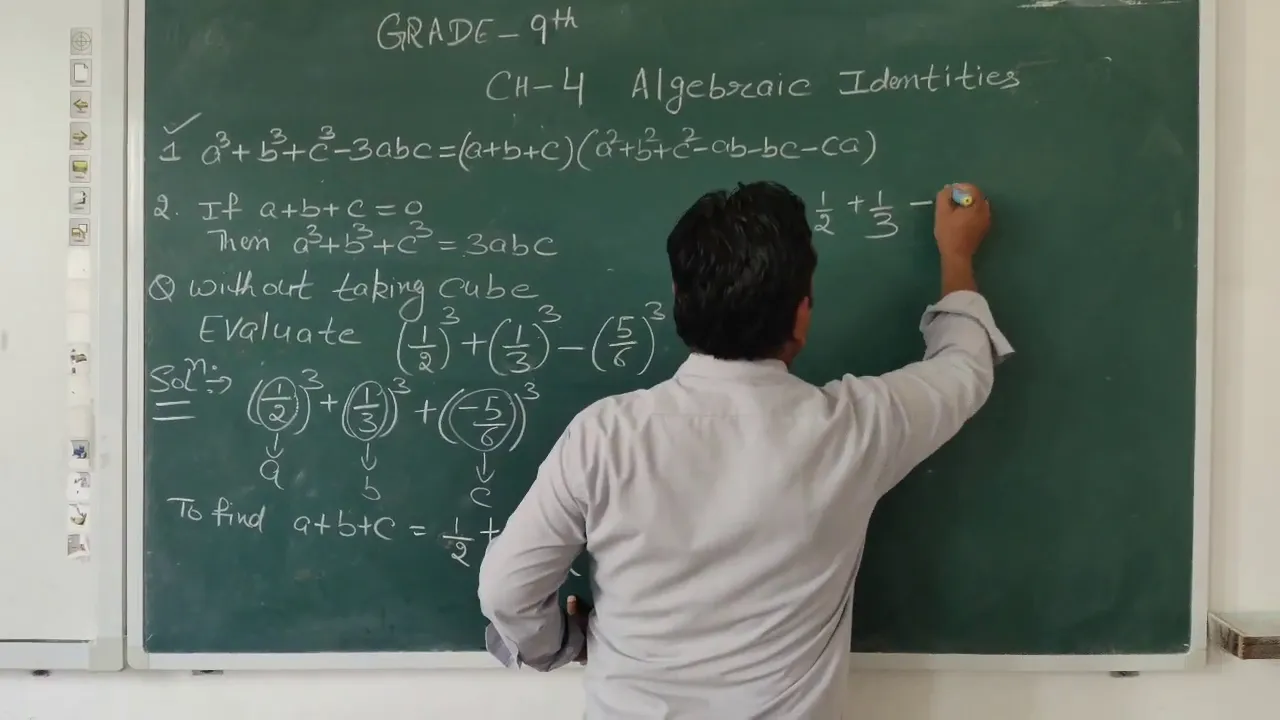 GRADE - 9th
CH-4 Algebraic Identities
✓
1 a³+b³+c³-3abc=(a+b+c)(a²+b²+c²-ab-bc-ca)
2. If a+b+c=0
Then a³+b³+c³=3abc
Q without taking cube
Evaluate (1/2)³+(1/3)³-(5/6)³
Solⁿ:→ (1/2)³+(1/3)³+(-5/6)³
↓ ↓ ↓
a b c
To find a+b+c = 1/2 +
1/2 + 1/3 -